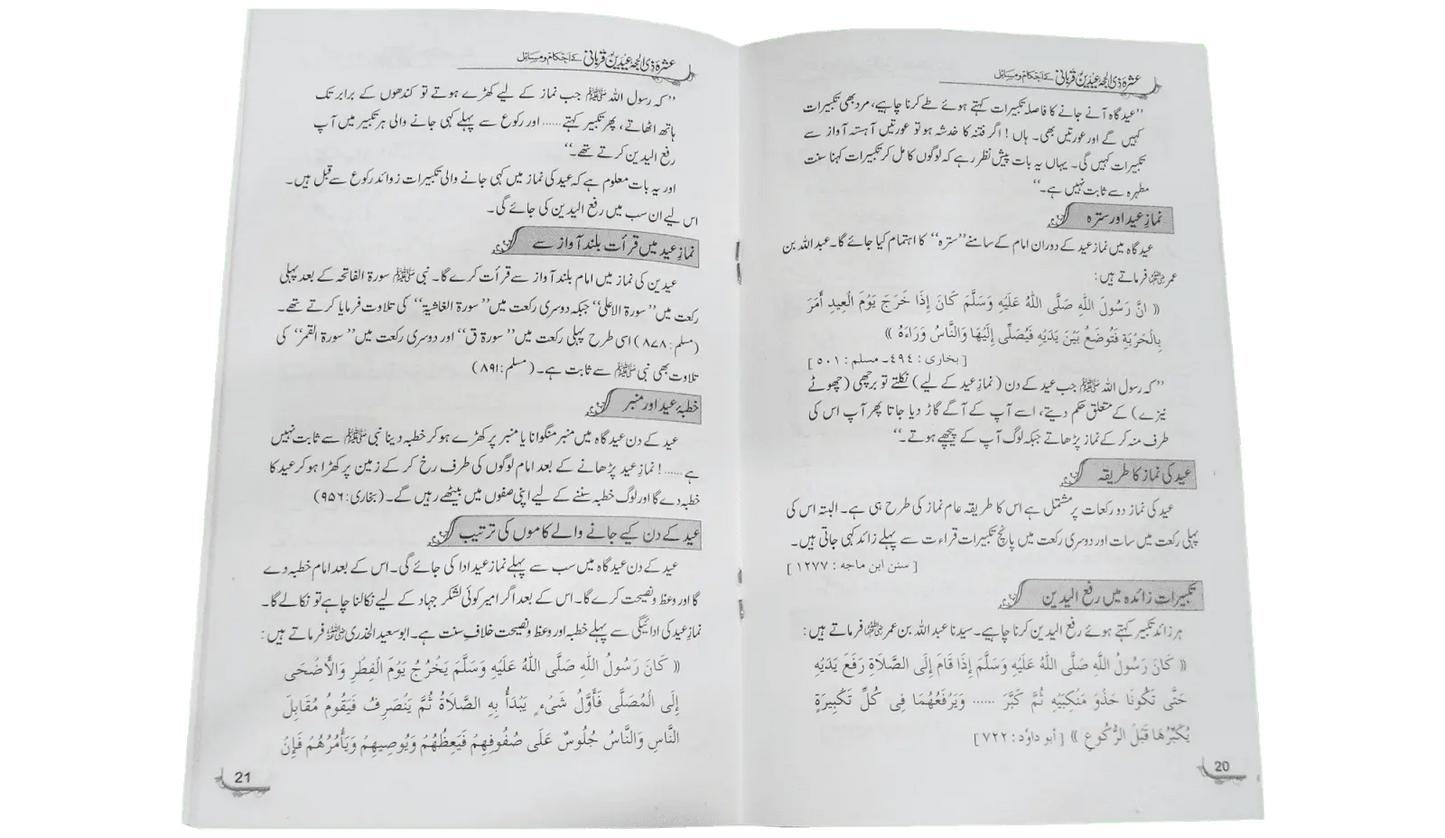 عشرہ ذی الحجہ عیدین قربانی کے احکام و مسائل
”عید گاہ آنے جانے کا فاصلہ تکبیرات کہتے ہوئے طے کرنا چاہیے، مرد بھی تکبیرات
کہیں گے اور عورتیں بھی۔ ہاں! اگر فتنہ کا خدشہ ہو تو عورتیں آہستہ آواز سے
تکبیرات کہیں گی۔ یہاں یہ بات پیش نظر رہے کہ لوگوں کا مل کر تکبیرات کہنا سنت
مطہرہ سے ثابت نہیں ہے۔“
نمازِ عید اور سترہ
عید گاہ میں نماز عید کے دوران امام کے سامنے ”سترہ“ کا اہتمام کیا جائے گا۔ عبداللہ بن
عمر رضی اللہ عنہ فرماتے ہیں:
(( انَّ رَسُولَ اللهِ صَلَّى اللهُ عَلَيْهِ وَسَلَّمَ كَانَ إِذَا خَرَجَ يَوْمَ الْعِيدِ أَمَرَ
بِالْحَرْبَةِ فَتُوضَعُ بَيْنَ يَدَيْهِ فَيُصَلِّى إِلَيْهَا وَالنَّاسُ وَرَاءَهُ ))
[ بخاری : ٤٩٤۔ مسلم : ٥٠١ ]
”کہ رسول اللہ ﷺ جب عید کے دن (نمازِ عید کے لیے) نکلتے تو برچھی (چھوٹے
نیزے) کے متعلق حکم دیتے، اسے آپ کے آگے گاڑ دیا جاتا پھر آپ اس کی
طرف منہ کر کے نماز پڑھاتے جبکہ لوگ آپ کے پیچھے ہوتے۔“
عید کی نماز کا طریقہ
عید کی نماز دو رکعات پر مشتمل ہے اس کا طریقہ عام نماز کی طرح ہی ہے۔ البتہ اس کی
پہلی رکعت میں سات اور دوسری رکعت میں پانچ تکبیرات قراءت سے پہلے زائد کہی جاتی ہیں۔
[ سنن ابن ماجه : ١٢٧٧ ]
تکبیراتِ زائدہ میں رفع الیدین
ہر زائد تکبیر کہتے ہوئے رفع الیدین کرنا چاہیے۔ سیدنا عبداللہ بن عمر رضی اللہ عنہ فرماتے ہیں:
(( كَانَ رَسُولُ اللهِ صَلَّى اللهُ عَلَيْهِ وَسَلَّمَ إِذَا قَامَ إِلَى الصَّلَاةِ رَفَعَ يَدَيْهِ
حَتَّى تَكُونَا حَذْوَ مَنْكِبَيْهِ ثُمَّ كَبَّرَ ...... وَيَرْفَعُهُمَا فِى كُلِّ تَكْبِيرَةٍ
يُكَبِّرُهَا قَبْلَ الرُّكُوعِ )) [أبو داوٗد : ٧٢٢]
20
عشرہ ذی الحجہ عیدین قربانی کے احکام و مسائل
”کہ رسول اللہ ﷺ جب نماز کے لیے کھڑے ہوتے تو کندھوں کے برابر تک
ہاتھ اٹھاتے، پھر تکبیر کہتے...... اور رکوع سے پہلے کہی جانے والی ہر تکبیر میں آپ
رفع الیدین کرتے تھے۔“
اور یہ بات معلوم ہے کہ عید کی نماز میں کہی جانے والی تکبیرات زوائد رکوع سے قبل ہیں۔
اس لیے ان سب میں رفع الیدین کی جائے گی۔
نمازِ عید میں قرأت بلند آواز سے
عیدین کی نماز میں امام بلند آواز سے قرأت کرے گا۔ نبی ﷺ سورۃ الفاتحہ کے بعد پہلی
رکعت میں ”سورۃ الاعلیٰ“ جبکہ دوسری رکعت میں ”سورۃ الغاشیۃ“ کی تلاوت فرمایا کرتے تھے۔
(مسلم: ۸۷۸) اسی طرح پہلی رکعت میں ”سورۃ ق“ اور دوسری رکعت میں ”سورۃ القمر“ کی
تلاوت بھی نبی ﷺ سے ثابت ہے۔ (مسلم: ۸۹۱)
خطبۂ عید اور منبر
عید کے دن عید گاہ میں منبر منگوانا یا منبر پر کھڑے ہو کر خطبہ دینا نبی ﷺ سے ثابت نہیں
ہے......! نمازِ عید پڑھانے کے بعد امام لوگوں کی طرف رخ کر کے زمین پر کھڑا ہو کر عید کا
خطبہ دے گا اور لوگ خطبہ سننے کے لیے اپنی صفوں میں بیٹھے رہیں گے۔ (بخاری: ۹۵۶)
عید کے دن کیے جانے والے کاموں کی ترتیب
عید کے دن عید گاہ میں سب سے پہلے نماز عید ادا کی جائے گی۔ اس کے بعد امام خطبہ دے
گا اور وعظ و نصیحت کرے گا۔ اس کے بعد اگر امیر کوئی لشکر جہاد کے لیے نکالنا چاہے تو نکالے گا۔
نمازِ عید کی ادائیگی سے پہلے خطبہ اور وعظ و نصیحت خلافِ سنت ہے۔ ابوسعید الخدری رضی اللہ عنہ فرماتے ہیں:
(( كَانَ رَسُولُ اللهِ صَلَّى اللهُ عَلَيْهِ وَسَلَّمَ يَخْرُجُ يَوْمَ الْفِطْرِ وَالْأَضْحَى
إِلَى الْمُصَلَّى فَأَوَّلُ شَىْءٍ يَبْدَأُ بِهِ الصَّلَاةُ ثُمَّ يَنْصَرِفُ فَيَقُومُ مُقَابِلَ
النَّاسِ وَالنَّاسُ جُلُوسٌ عَلَى صُفُوفِهِمْ فَيَعِظُهُمْ وَيُوصِيهِمْ وَيَأْمُرُهُمْ فَإِنْ
21